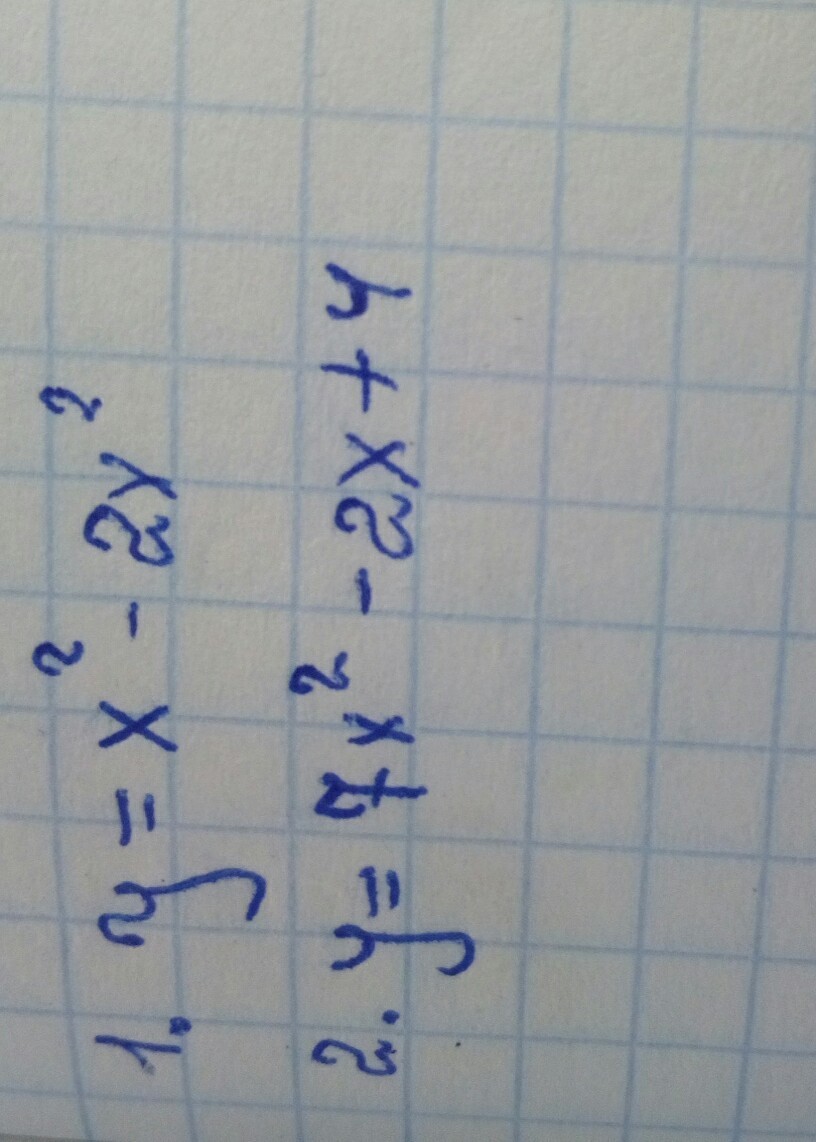 1. y = x² - 2y²
2. y = 7x² - 2x + 4